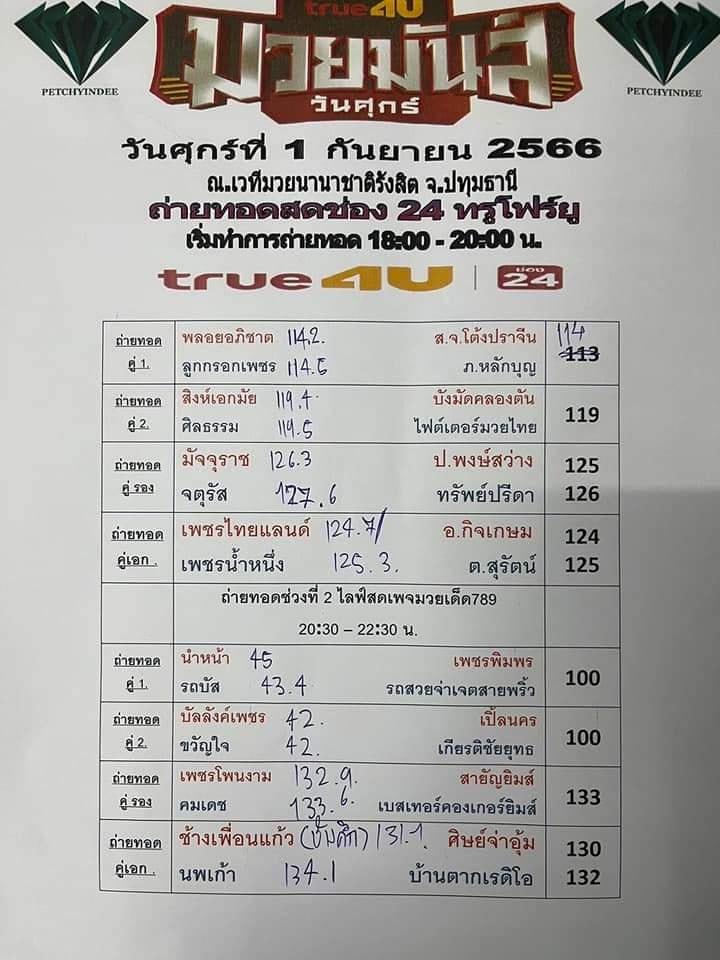 true4U
PETCHYINDEE
มวยมันส์
วันศุกร์
PETCHYINDEE
วันศุกร์ที่ 1 กันยายน 2566
ณ.เวทีมวยนานาชาติรังสิต จ.ปทุมธานี
ถ่ายทอดสดช่อง 24 ทรูโฟร์ยู
เริ่มทำการถ่ายทอด 18:00 - 20:00 น.
true4U | ช่อง 24
ถ่ายทอด คู่ 1. พลอยอภิชาต 114.2. ส.จ.โต้งปราจีน 114 113
ลูกกรอกเพชร 114.5 ภ.หลักบุญ
ถ่ายทอด คู่ 2. สิงห์เอกมัย 119.4 บังมัดคลองตัน 119
ศิลธรรม 119.5 ไฟต์เตอร์มวยไทย
ถ่ายทอด คู่ รอง มัจจุราช 126.3 ป.พงษ์สว่าง 125
จตุรัส 127.6 ทรัพย์ปรีดา 126
ถ่ายทอด คู่เอก . เพชรไทยแลนด์ 124.7/ อ.กิจเกษม 124
เพชรน้ำหนึ่ง 125.3. ต.สุรัตน์ 125
ถ่ายทอดช่วงที่ 2 ไลฟ์สดเพจมวยเด็ด789
20:30 – 22:30 น.
ถ่ายทอด คู่ 1. นำหน้า 45 เพชรพิมพร 100
รถบัส 43.4 รถสวยจ่าเจตสายพริ้ว
ถ่ายทอด คู่ 2. บัลลังค์เพชร 42. เปิ้ลนคร 100
ขวัญใจ 42. เกียรติชัยยุทธ
ถ่ายทอด คู่ รอง เพชรโพนงาม 132.9. สายัญยิมส์ 133
คมเดช 133.6. เบสเทอร์คองเกอร์ยิมส์
ถ่ายทอด คู่เอก . ช้างเพื่อนแก้ว 131.1. ศิษย์จ่าอุ้ม 130
นพเก้า 134.1 บ้านตากเรดิโอ 132